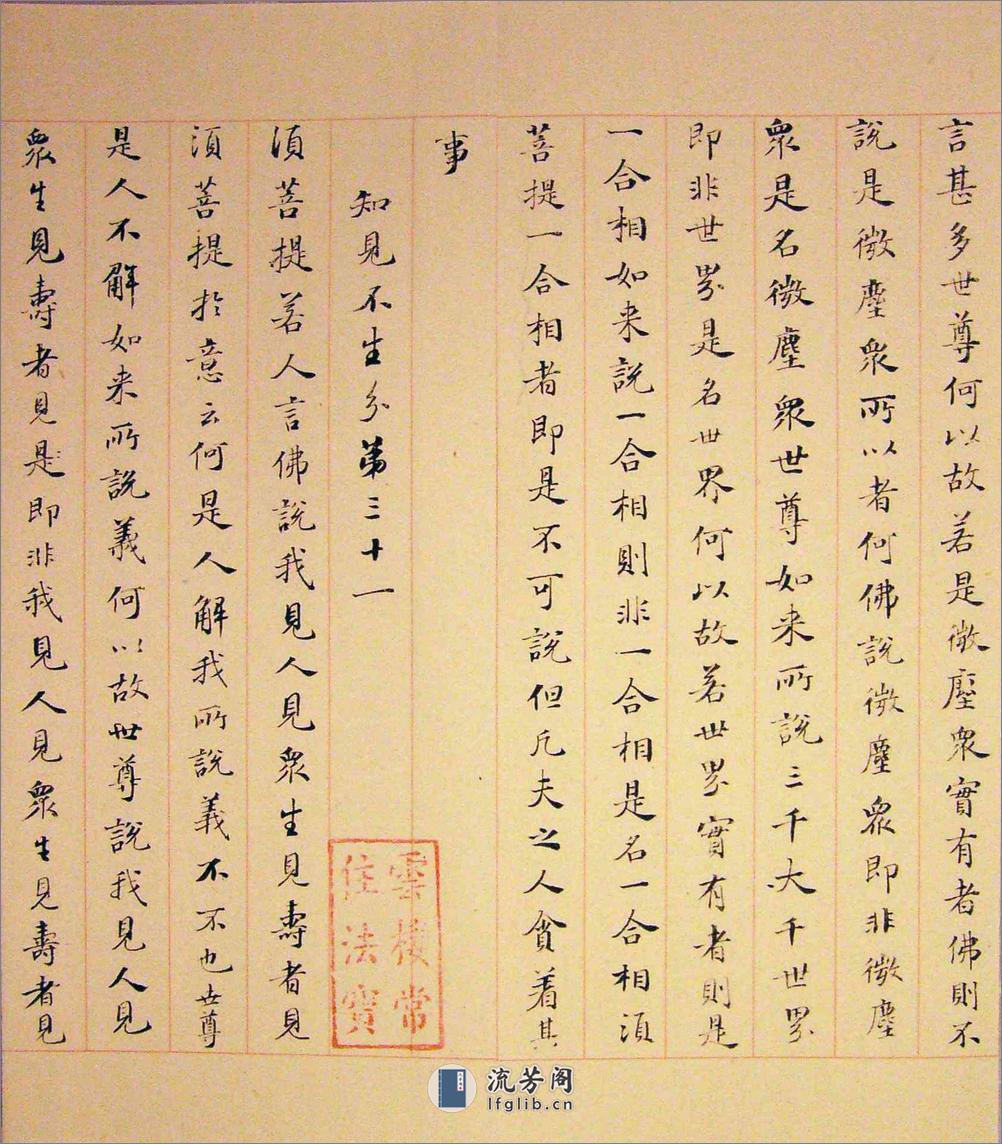 言甚多世尊何以故若是微塵衆實有者佛則不
說是微塵衆所以者何佛說微塵衆即非微塵
衆是名微塵衆世尊如来所說三千大千世界
即非世界是名世界何以故若世界實有者則是
一合相如来說一合相則非一合相是名一合相須
菩提一合相者即是不可說但凡夫之人貪着其
事
知見不生分第三十一
須菩提若人言佛說我見人見衆生見壽者見
須菩提於意云何是人解我所說義不不也世尊
是人不解如来所說義何以故世尊說我見人見
衆生見壽者見是即非我見人見衆生見壽者見
雲棲常
住法寶
流芳阁
lfglib.cn